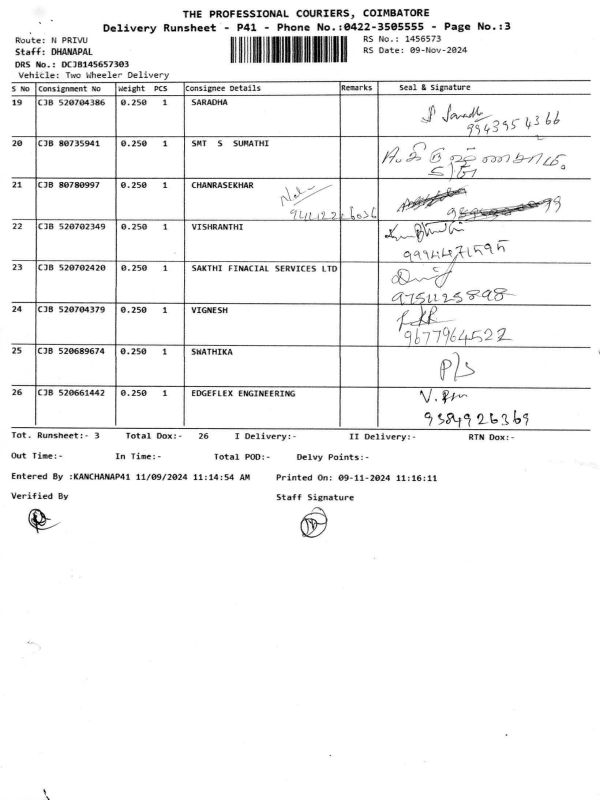 THE PROFESSIONAL COURIERS, COIMBATORE
Delivery Runsheet - P41 - Phone No.:0422-3505555 - Page No.:3
Route: N PRIVU
RS No.: 1456573
Staff: DHANAPAL
RS Date: 09-Nov-2024
DRS No.: DCJB145657303
Vehicle: Two Wheeler Delivery
S No Consignment No Weight PCS Consignee Details Remarks Seal & Signature
19 CJB 520704386 0.250 1 SARADHA
9943954366
20 CJB 80735941 0.250 1 SMT S SUMATHI
21 CJB 80780997 0.250 1 CHANRASEKHAR
22 CJB 520702349 0.250 1 VISHRANTHI
9994471595
23 CJB 520702420 0.250 1 SAKTHI FINACIAL SERVICES LTD
9751125898
24 CJB 520704379 0.250 1 VIGNESH
9677964522
25 CJB 520689674 0.250 1 SWATHIKA
P/S
26 CJB 520661442 0.250 1 EDGEFLEX ENGINEERING
9384926369
Tot. Runsheet:- 3 Total Dox:- 26 I Delivery:- II Delivery:- RTN Dox:-
Out Time:- In Time:- Total POD:- Delvy Points:-
Entered By :KANCHANAP41 11/09/2024 11:14:54 AM Printed On: 09-11-2024 11:16:11
Verified By Staff Signature